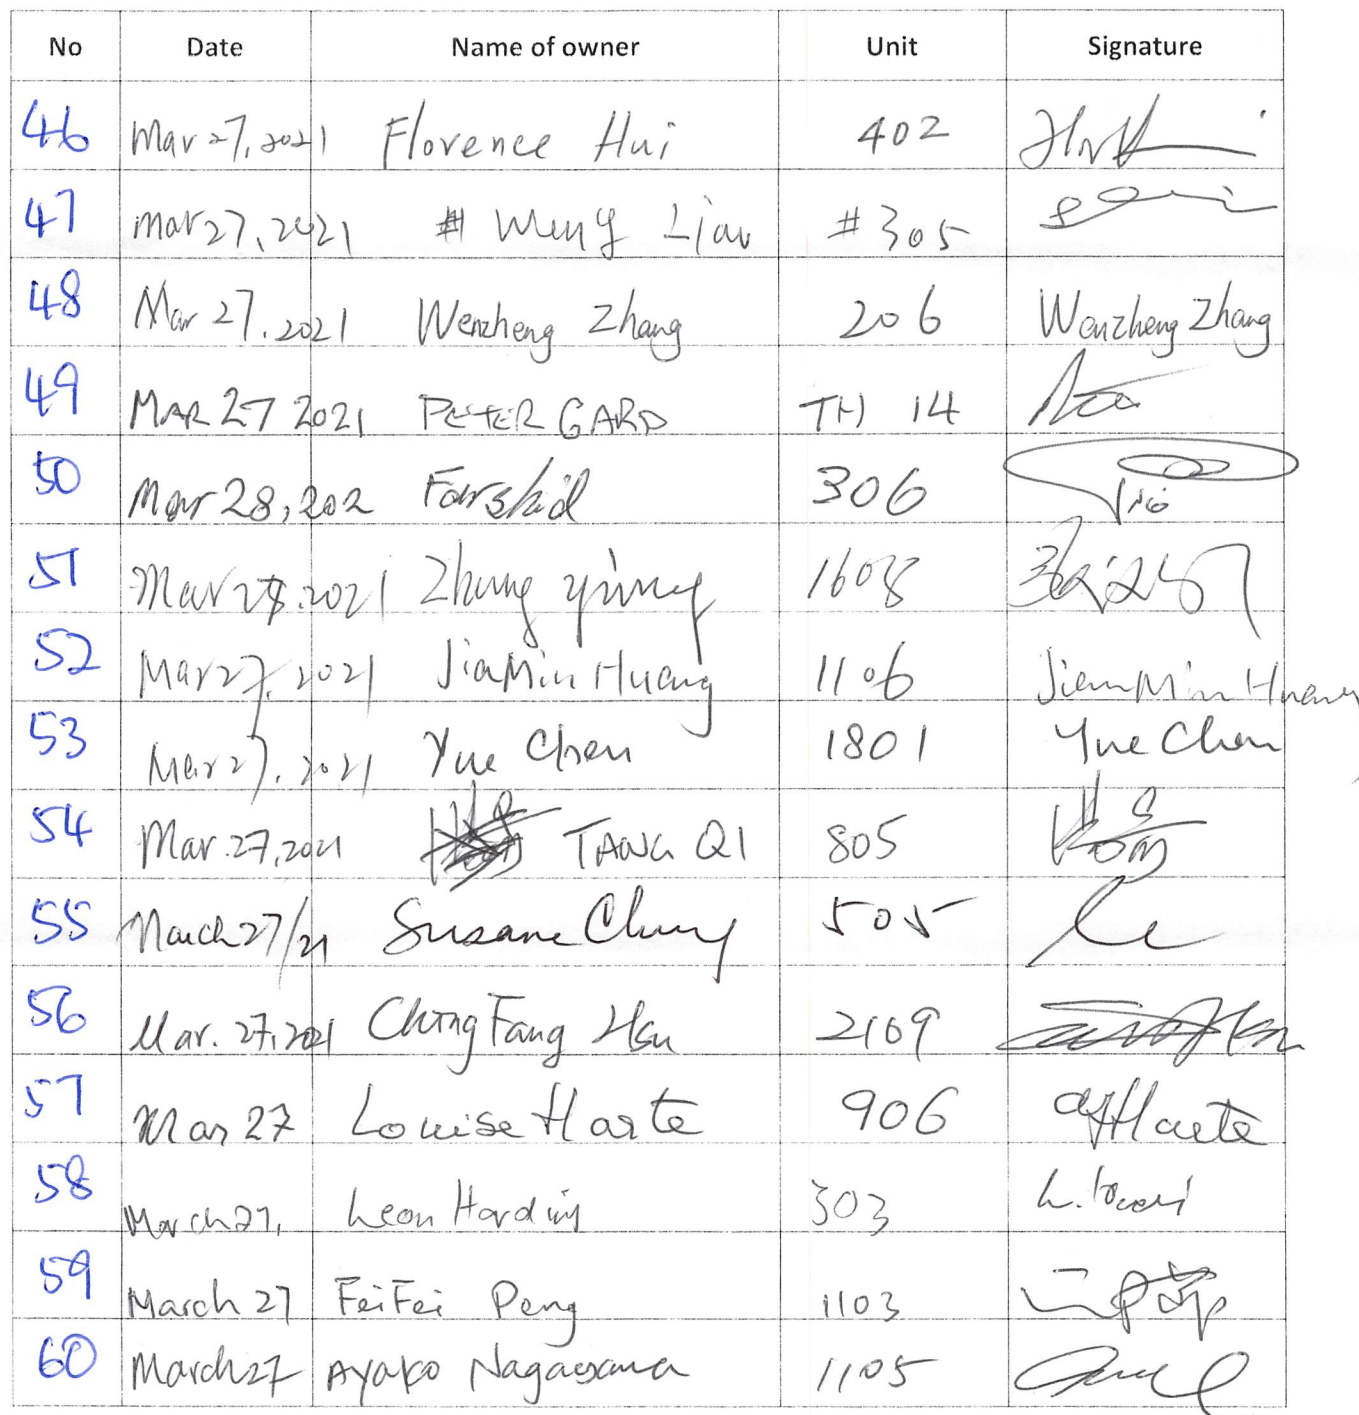 No Date Name of owner Unit Signature
46 Mar 27, 2021 Florence Hui 402
47 Mar 27, 2021 # Meng Liau #305
48 Mar 27. 2021 Wenzheng Zhang 206 Wenzheng Zhang
49 MAR 27 2021 PETER GARD TH 14
50 Mar 28, 202 Farshid 306
51 Mar 28. 2021 Zhang 1608
52 Mar 27, 2021 JiaMin Huang 1106
53 Mar 27, 2021 Yue Chen 1801 Yue Chen
54 Mar. 27, 2021 TANG QI 805
55 March 27/21 Susane Chung 505
56 Mar. 27, 2021 Ching Fang Hsu 2109
57 Mar 27 Louise Harte 906 Harte
58 March 27, Leon Harding 303
59 March 27 FeiFei Peng 1103
60 March 27 AyAko 1105